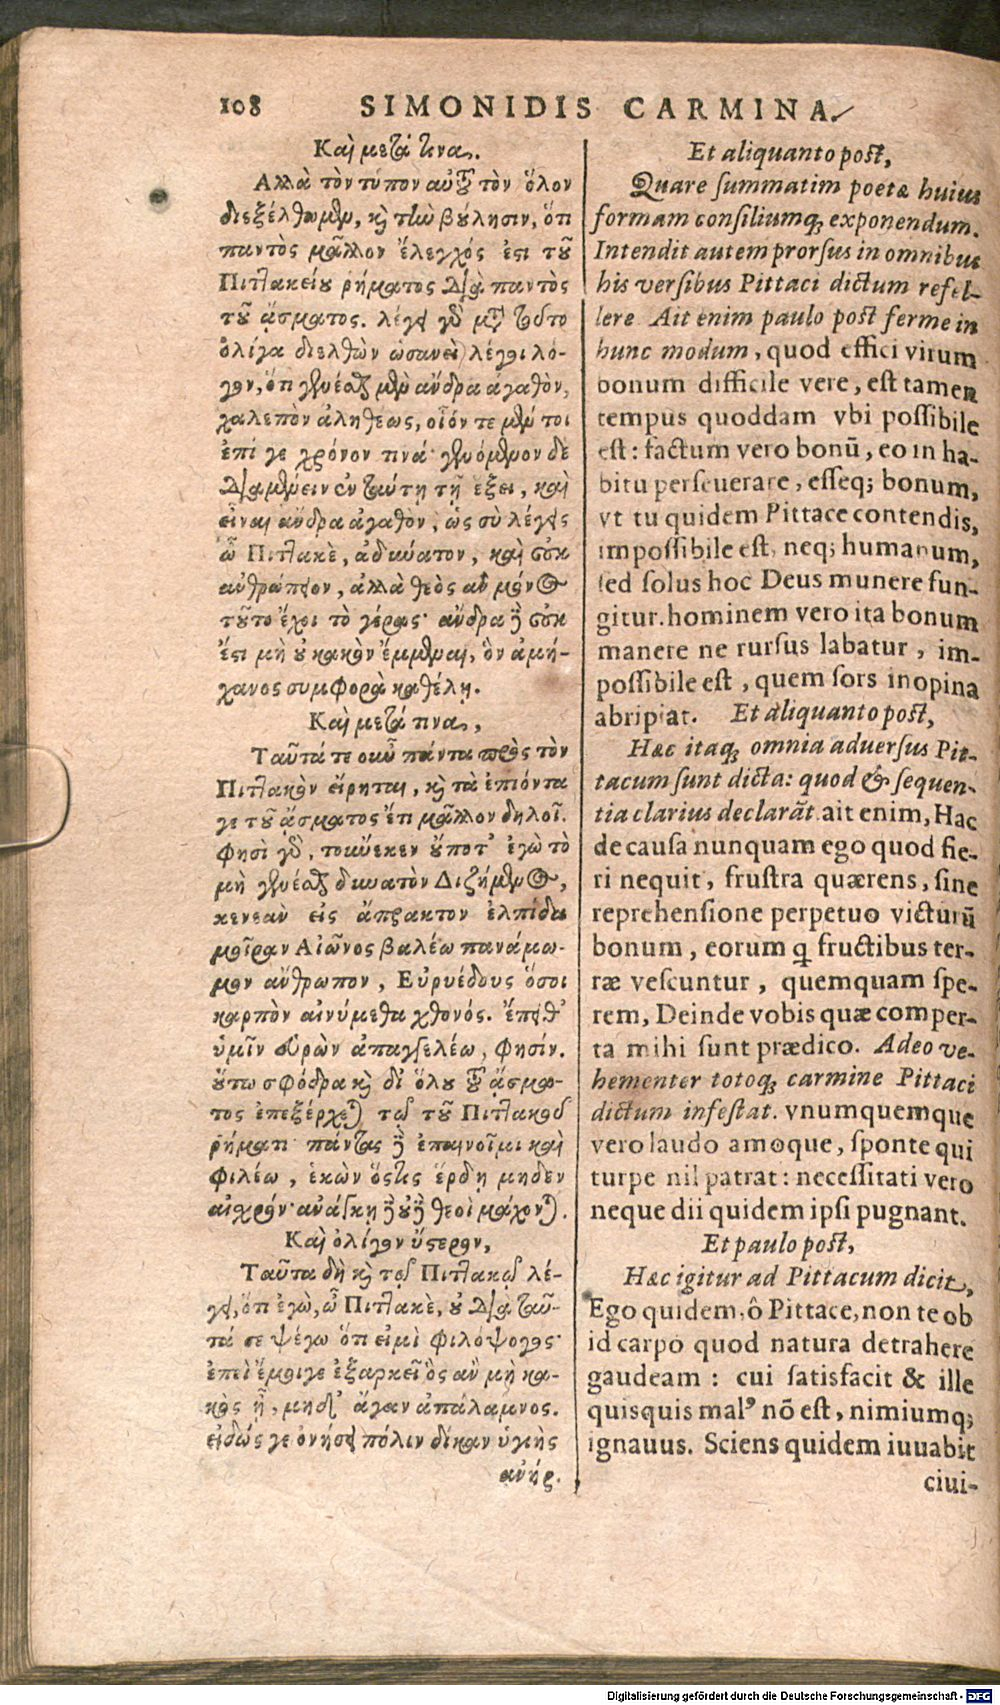 108 SIMONIDIS CARMINA.
Καὶ μετά τινα.
Ἀλλὰ τὸν τύπον αὐτοῦ τὸν ὅλον
διεξέλθωμεν, καὶ τὴν βούλησιν, ὅτι
παντὸς μᾶλλον ἔλεγχός ἐστι τοῦ
Πιττακείου ῥήματος διὰ παντὸς
τοῦ ᾄσματος. λέγει γὰρ μετὰ τοῦτο
ὀλίγα διελθὼν ὡσανεὶ λέγοι λό-
γον, ὅτι γενέσθαι μὲν ἄνδρα ἀγαθὸν,
χαλεπὸν ἀληθέως, οἷόν τε μέν τοι
ἐπί γε χρόνον τινά· γενόμενον δὲ
διαμένειν ἐν ταύτῃ τῇ ἕξει, καὶ
εἶναι ἄνδρα ἀγαθὸν, ὡς σὺ λέγεις
ὦ Πιττακὲ, ἀδύνατον, καὶ οὐκ
ἀνθρώπειον, ἀλλὰ θεὸς ἂν μόνος
τοῦτο ἔχοι τὸ γέρας· ἄνδρα δὲ οὐκ
ἔστι μὴ οὐ κακὸν ἔμμεναι, ὃν ἀμή-
χανος συμφορὰ καθέλῃ.
Καὶ μετά τινα,
Ταῦτά τε οὖν πάντα πρὸς τὸν
Πιττακὸν εἴρηται, καὶ τὰ ἐπιόντα
γε τοῦ ᾄσματος ἔτι μᾶλλον δηλοῖ.
Φησὶ γὰρ, τοὔνεκεν οὔποτ' ἐγὼ τὸ
μὴ γενέσθαι δυνατὸν Διζήμενος,
κενεὰν εἰς ἄπρακτον ἐλπίδα
μοῖραν Αἰῶνος βαλέω πανάμω-
μον ἄνθρωπον, Εὐρυέδους ὅσοι
καρπὸν αἰνύμεθα χθονός. ἔπειθ'
ὑμῖν εὑρὼν ἀπαγγελέω, φησίν.
οὕτω σφόδρα καὶ δι' ὅλου τοῦ ᾄσμα-
τος ἐπεξέρχεται τῷ τοῦ Πιττακοῦ
ῥήματι πάντας δὲ ἐπαινοῖμι καὶ
φιλέω, ἑκὼν ὅστις ἔρδῃ μηδὲν
αἰσχρόν· ἀνάγκῃ δὲ οὐδὲ θεοὶ μάχονται.
Καὶ ὀλίγον ὕστερον,
Ταῦτα δὴ καὶ τῷ Πιττακῷ λέ-
γει, ὅτι ἐγὼ, ὦ Πιττακὲ, οὐ διὰ ταῦ-
τά σε ψέγω ὅτι εἰμὶ φιλόψογος·
ἐπεὶ ἔμοιγε ἐξαρκεῖ ὃς ἂν μὴ κα-
κὸς ᾖ, μηδ' ἄγαν ἀπάλαμνος.
εἰδώς γε ὀνήσει πόλιν δίκαν ὑγιὴς
ἀνήρ.
Et aliquanto post,
Quare summatim poetæ huius
formam consiliumq; exponendum.
Intendit autem prorsus in omnibus
his versibus Pittaci dictum refel-
lere Ait enim paulo post ferme in
hunc modum, quod effici virum
bonum difficile vere, est tamen
tempus quoddam vbi possibile
est: factum vero bonū, eo in ha-
bitu perseuerare, esseq; bonum,
vt tu quidem Pittace contendis,
impossibile est, neq; humanum,
sed solus hoc Deus munere fun-
gitur. hominem vero ita bonum
manere ne rursus labatur, im-
possibile est, quem sors inopina
abripiat. Et aliquanto post,
Hæc itaq; omnia aduersus Pit-
tacum sunt dicta: quod & sequen-
tia clarius declarāt. ait enim, Hac
de causa nunquam ego quod fie-
ri nequit, frustra quærens, sine
reprehensione perpetuo victurū
bonum, eorum q̃ fructibus ter-
ræ vescuntur, quemquam spe-
rem, Deinde vobis quæ comper-
ta mihi sunt prædico. Adeo ve-
hementer totoq; carmine Pittaci
dictum infestat. vnumquemque
vero laudo amoque, sponte qui
turpe nil patrat: necessitati vero
neque dii quidem ipsi pugnant.
Et paulo post,
Hæc igitur ad Pittacum dicit,
Ego quidem, ô Pittace, non te ob
id carpo quod natura detrahere
gaudeam: cui satisfacit & ille
quisquis malꝰ nō est, nimiumq;
ignauus. Sciens quidem iuuabit
ciui-
Digitalisierung gefördert durch die Deutsche Forschungsgemeinschaft - DFG